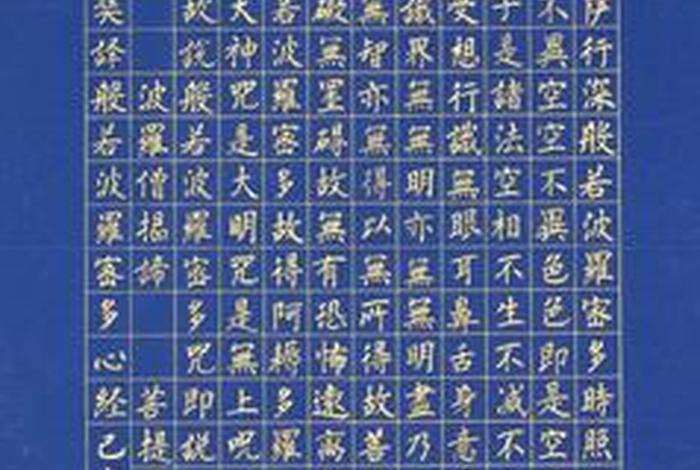 萨行深般若波羅密多時照
不異空空不異色色即是空
子是諸法空相不生不减不
受想行識無眼耳鼻舌身意
識界無無明亦無無明盡乃
無智亦無得以無所得故菩
礙無罣碍故無有恐怖遠离
若波羅密多故得阿耨多羅
大神咒是大明咒是無上咒
故說般若波羅密多咒即説
波羅僧揭諦 菩提
奘譯般若波羅密多心经己